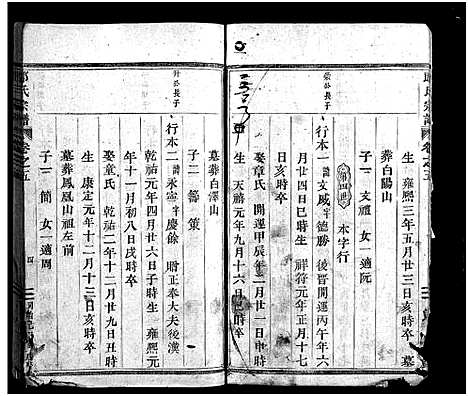 生 雍熙三年五月廿三日亥時卒 墓
葬白陽山
子二 文禮 女一 適阮
第四世 本字行
榮公長子
行本一 諱文咸 字德勝 後晋開運丙午年六
月廿四日巳時生 祥符元年正月十七
日亥時卒
娶章氏 開運甲辰年二月廿一日申時
生 天禧元年九月十六日亥時卒
墓葬白澤山
子二 籌 策
行本二 諱永寧 字慶餘 贈正奉大夫 後漢
乾祐元年四月廿六日子時生 雍熙元
年十一月初八日戌時卒
娶童氏 乾祐二年十二月廿九日丑時
生 康定元年十二月十三日亥時卒
墓葬鳳凰山祖左前
子一 簡 女一 適周
氏宗譜 卷之五
四